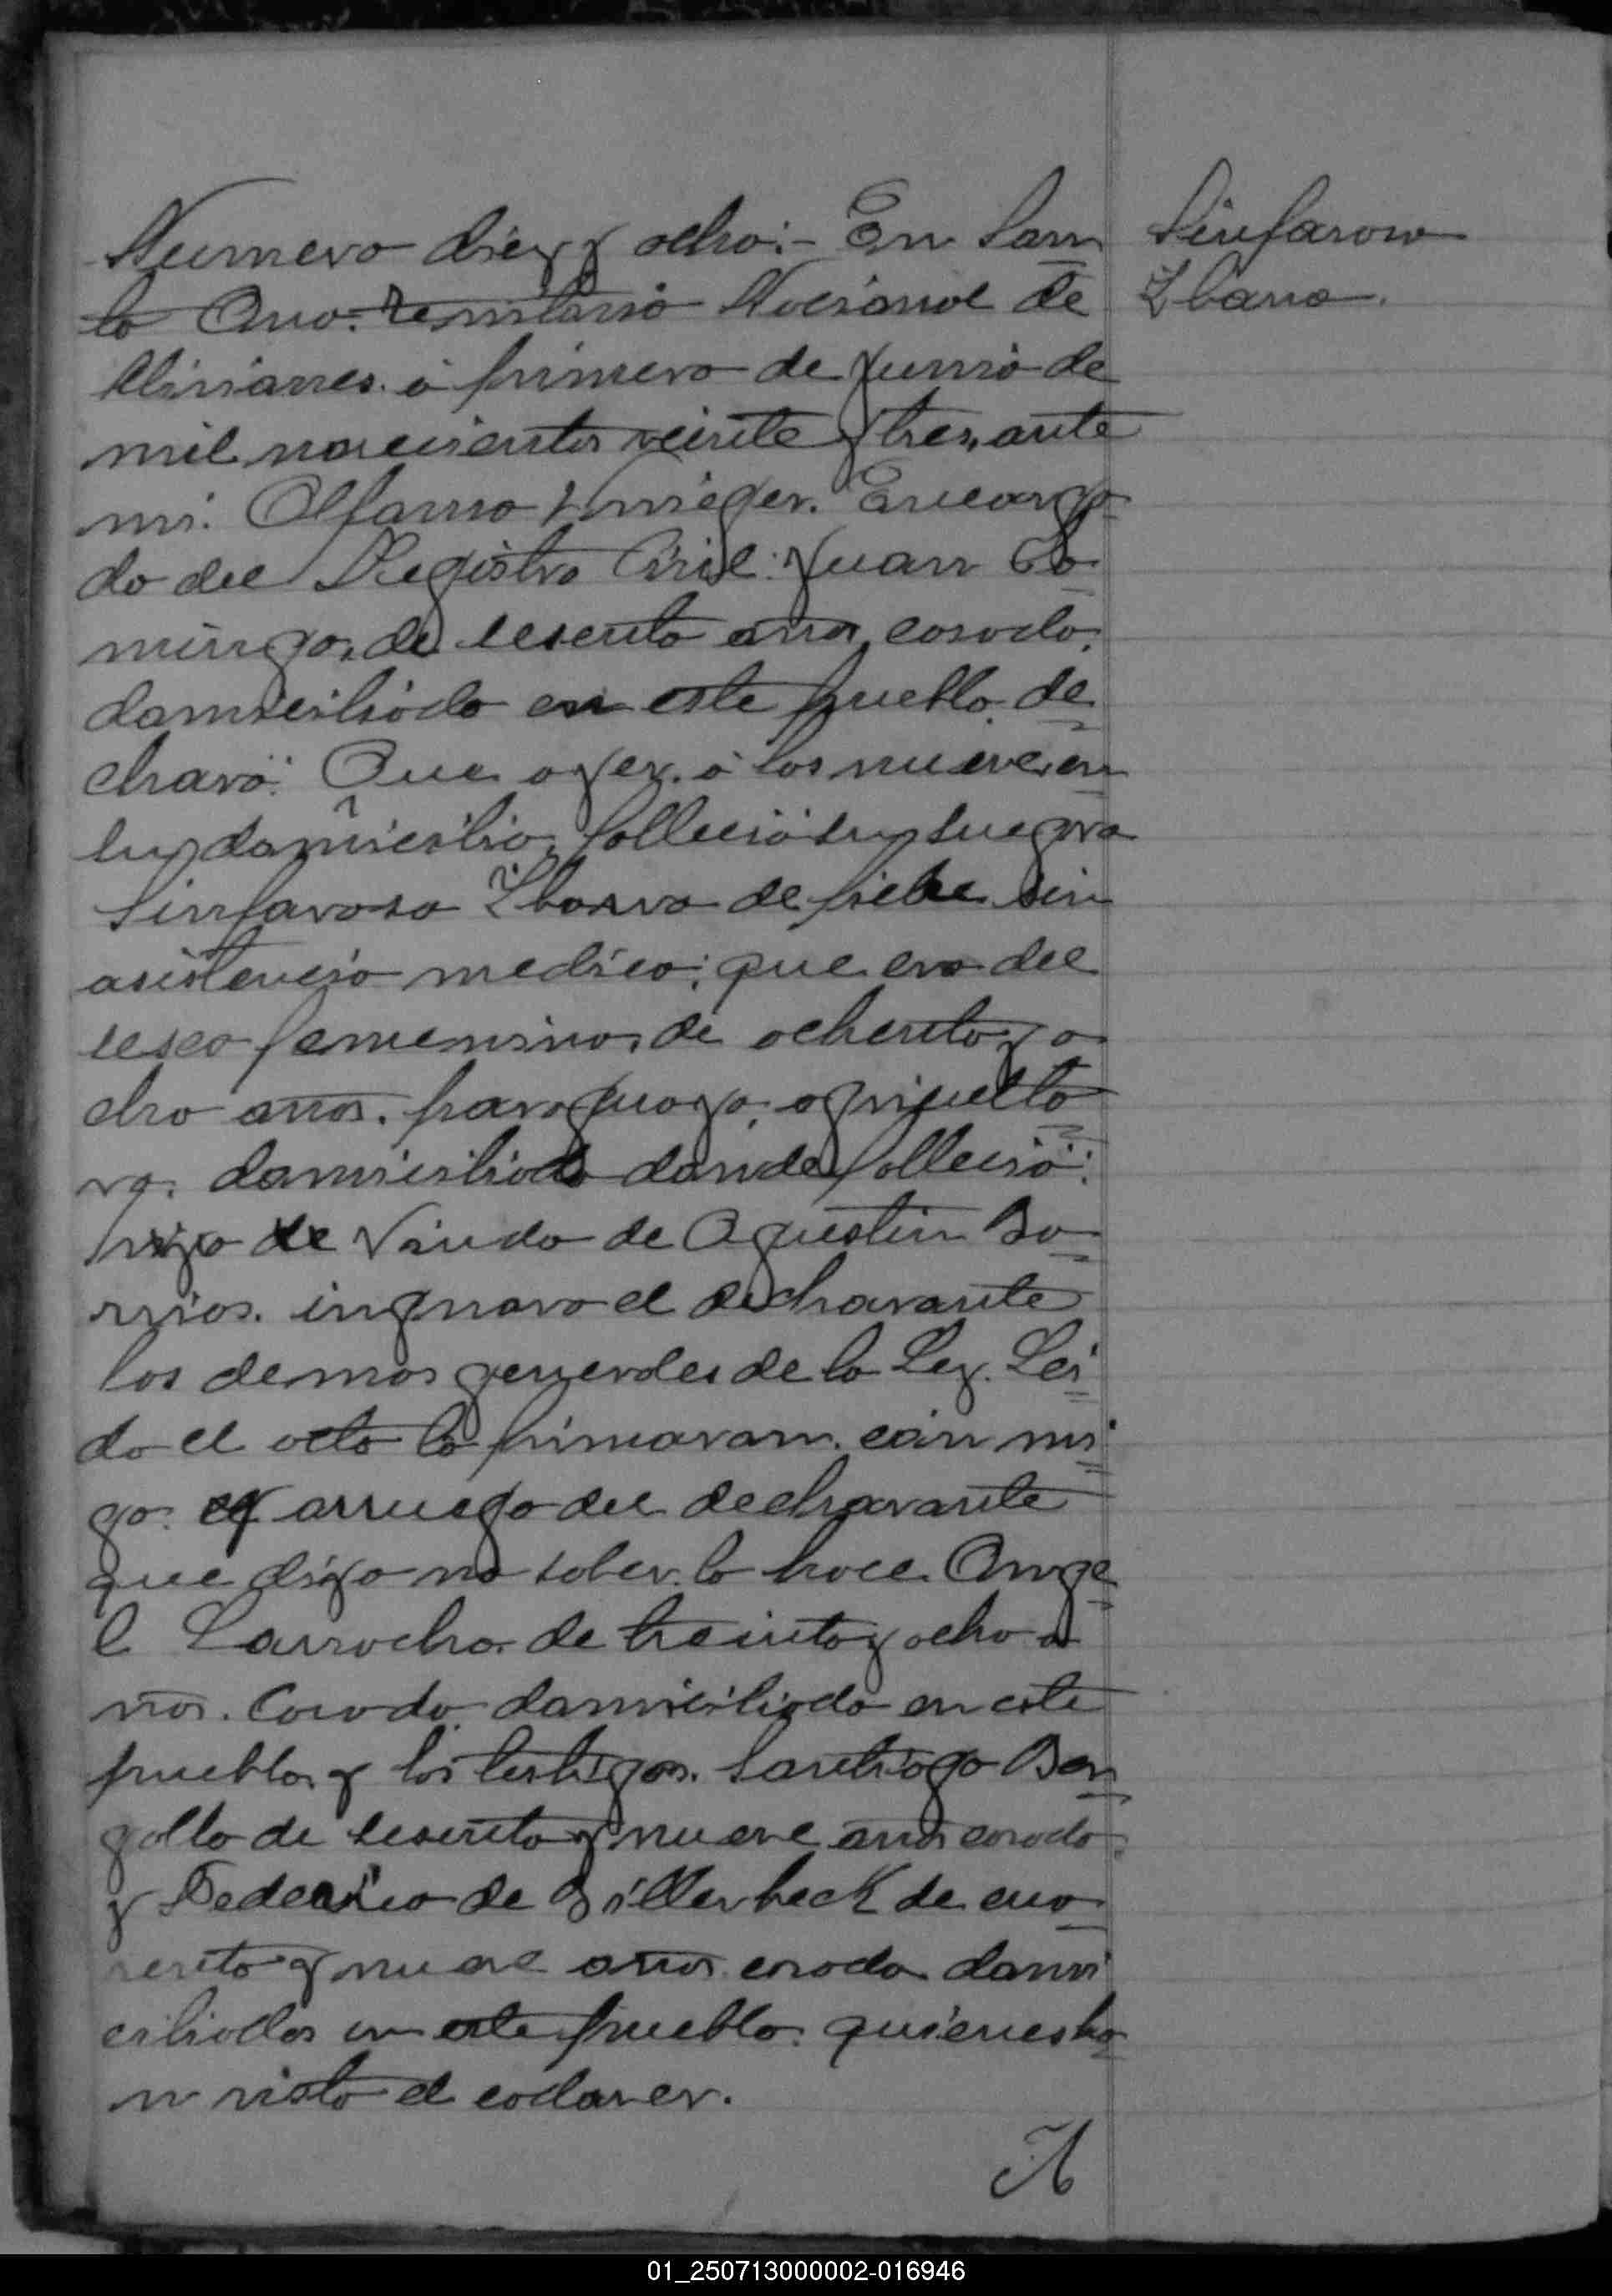 Numero diez y ocho:- En San
ta Ana. Territorio Nacional de
Misiones. á primero de Junio de
mil novecientos veinte y tres, ante
mi. Alfonso Krieger. Encarga
do del Registro Civil: Juan Do
mingo, de sesenta años, casado,
domiciliado en este pueblo. de
claró: Que ayer. á las nueve, en
su domicilio, falleció su suegra
Sinforosa Ibarra de fiebre sin
asistencia medica; que era del
sexo femenino, de ochenta y o
cho años. paraguaya, agriculto
ra. domiciliada donde falleció:
hija de Viuda de Agustin Ba
rrios. ingnora el declarante
las demas generales de la Ley. Lei
da el acta la firmaron. con mi
go. y arruego del declarante
que dijo no saber. lo hace. Ange
l Larrocha. de treinta y ocho a
ños. Casado domiciliado en este
pueblo, y los testigos. Santiago Ben
galla de sesenta y nueve años casado.
y Federico de Billerbeck de cua
renta y nueve años. casado. domi
ciliados en este pueblo. quienes ha
n visto el cadaver.
Sinforosa
Ibarra.
01_250713000002-016946